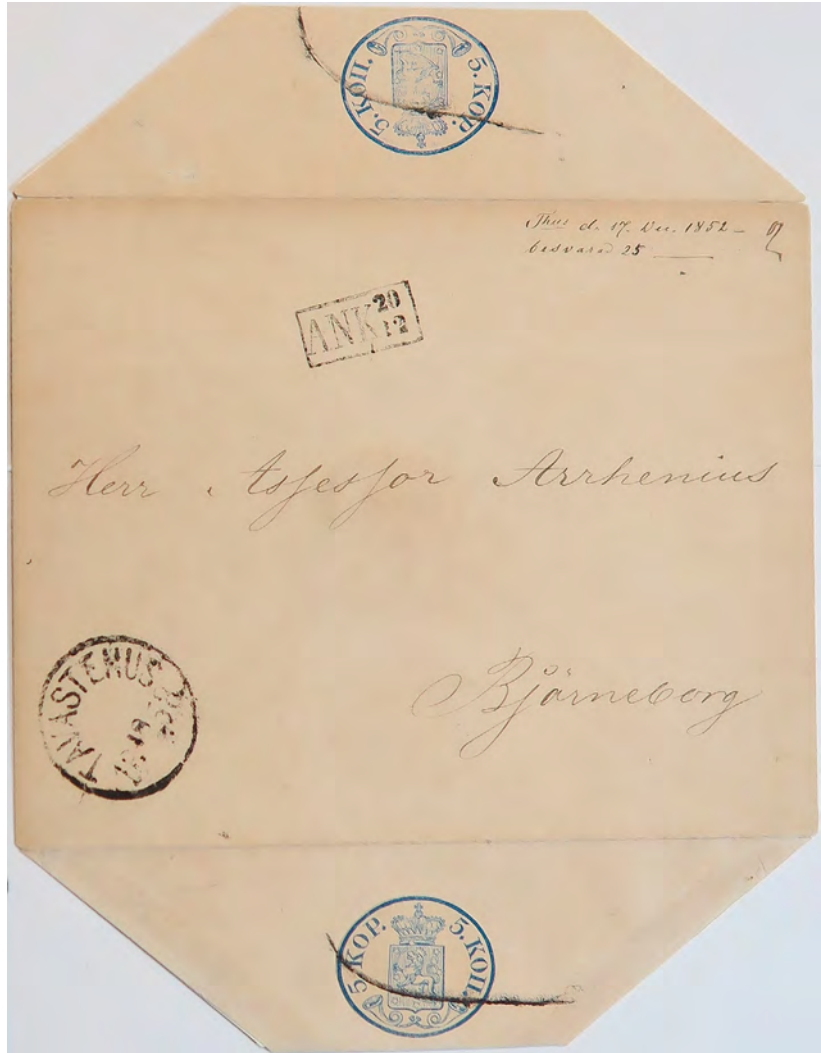 5. КОП. 5. KOP.
Thus d. 17. Dec. 1852 –
besvarad 25
ANK 20
12
Herr Assessor Arrhenius
Björneborg
TAVASTEHUS
5. KOP. 5. КОП.